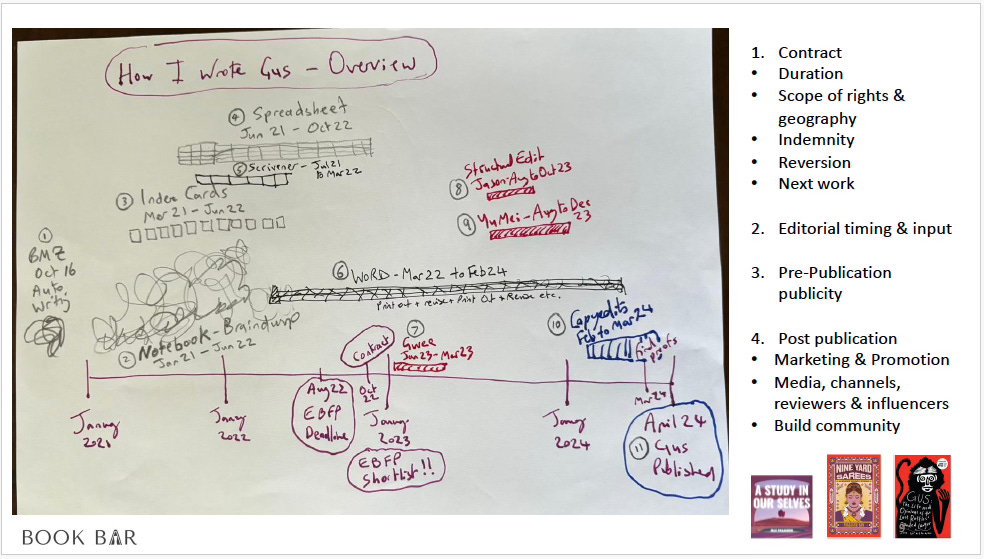 How I Wrote Gus - Overview
④ Spreadsheet
Jun 21 - Oct 22
⑤ Scrivener - Jul 21
to Mar 22
③ Index Cards
Mar 21 - Jun 22
①
BMZ
Oct 16
Auto.
Writing
② Notebook - Braindump
Jan 21 - Jun 22
Structural Edit
⑧ Jason - Aug to Oct 23
⑨ YuMei - Aug to Dec
23
⑥ WORD - Mar 22 to Feb 24
Print out + revise + Print Out + Revise etc.
Contract
⑦
Gwee
Jan 23 - Mar 23
⑩ Copyedits
Feb to Mar 24
Final
proofs
January
2021
January
2022
Aug 22
EBFP
Deadline
Oct
22
January
2023
EBFP
Shortlist!!
January
2024
Mar 24
April 24
⑪ Gus
Published
1. Contract
• Duration
• Scope of rights &
geography
• Indemnity
• Reversion
• Next work
2. Editorial timing & input
3. Pre-Publication
publicity
4. Post publication
• Marketing & Promotion
• Media, channels,
reviewers & influencers
• Build community
A STUDY IN
OUR SELVES
NINE YARD
SAREES
GUS:
The Life and
Opinions of the
Last Raffles'
Banded Langur
BOOK BAR